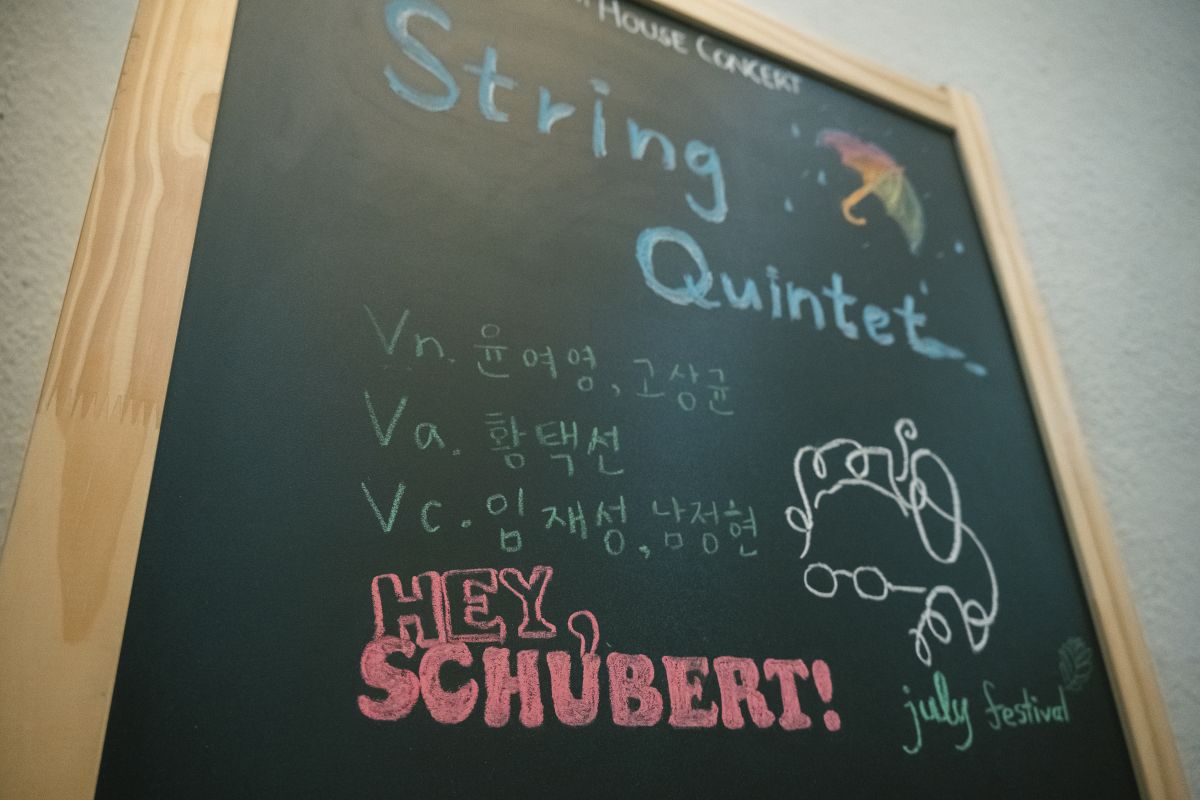 House Concert
String
Quintet
Vn. 윤여영, 고상균
Va. 황택선
Vc. 임재성, 남정현
HEY,
SCHUBERT!
july festival